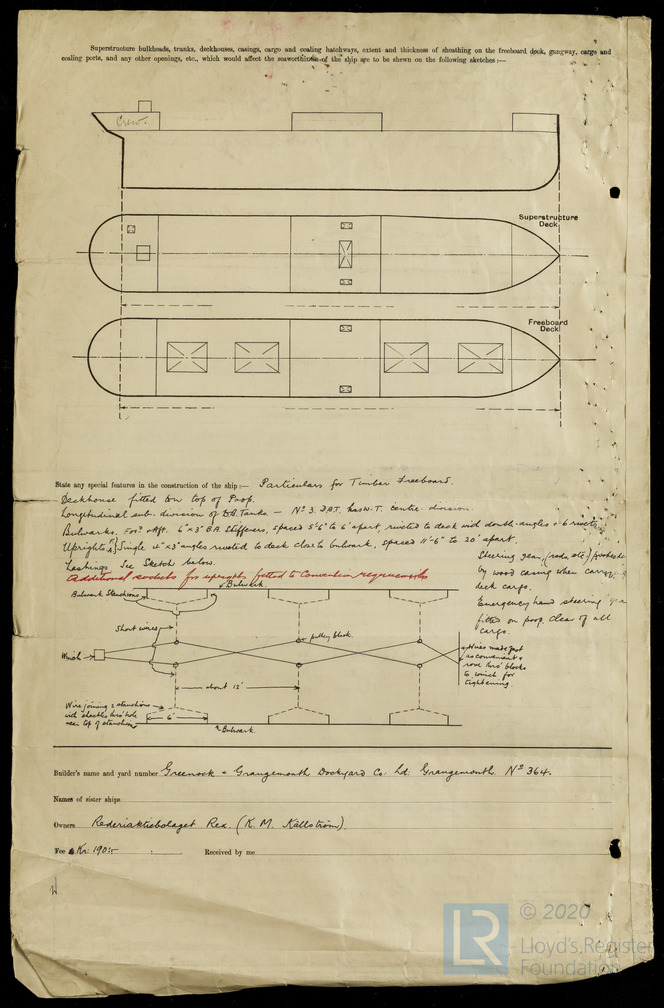 Superstructure bulkheads, trunks, deckhouses, casings, cargo and coaling hatchways, extent and thickness of sheathing on the freeboard deck, gangway, cargo and
coaling ports, and any other openings, etc., which would affect the seaworthiness of the ship are to be shewn on the following sketches:—
Crew.
Superstructure
Deck.
Freeboard
Deck
State any special features in the construction of the ship:— Particulars for Timber Freeboard.
Deckhouse fitted on top of Poop.
Longitudinal sub-division of D.B. Tanks — No 3. D.B.T. has W.T. centre division.
Bulwarks. For'd & Aft. 6" x 3" B.A. Stiffeners, spaced 5'-6" to 6' apart, riveted to deck with double-angles & 6 rivets.
Uprights Single 4" x 3" angles riveted to deck close to bulwark, spaced 11'-6" to 20' apart.
Lashings See Sketch below.
Additional sockets for uprights fitted to Convention requirements
Steering gear, (rods etc) protected
by wood casing when carrying
deck cargo.
Emergency hand steering gear
fitted on poop clear of all
cargo.
Bulwark
Bulwark Stanchions
Short wires
pulley block.
Winch
Wires made fast
as convenient &
rove thro' blocks
to winch for
tightening.
about 12'
Wire joining 2 stanchions
with shackles thro' hole
near top of stanchion
6'
Bulwark.
Builder's name and yard number Greenock & Grangemouth Dockyard Co: Ld: Grangemouth. No 364.
Names of sister ships
Owners Rederiaktiebolaget Rex. (K. M. Källström).
Fee Kr: 190:
Received by me
LR
© 2020
Lloyd's Register
Foundation